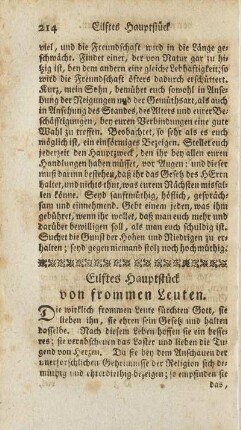 214 Eilftes Hauptstück
viel, und die Freundschaft wird in die Länge ge-
schwächt. Findet einer, der von Natur gar zu hi-
tzig ist, bey dem andern eine gleiche Lebhaftigkeit, so
wird die Freundschaft öfters dadurch erschüttert.
Kurz, mein Sohn, bemühet euch sowohl in Anseh-
ung der Neigungen und der Gemüthsart, als auch
in Ansehung des Standes, des Alters und eurer Be-
schäfftigungen, bey euren Verbindungen eine gute
Wahl zu treffen. Beobachtet, so sehr als es euch
möglich ist, ein einförmiges Bezeigen. Stellet euch
jederzeit den Hauptzweck, den ihr bey allen euren
Handlungen haben müsset, vor Augen; und dieser
muß darinn bestehen, daß ihr das Gesetz des HErrn
haltet, und nichts thut, was eurem Nächsten missal-
len könne. Seyd sanftmüthig, höflich, gespräch-
sam und einnehmend. Gebt einem jeden, was ihm
gebühret, wenn ihr wollet, daß man euch mehr und
darüber bewilligen soll, als man euch schuldig ist.
Suchet die Gunst der Hohen und Niedrigen zu er-
halten; seyd gegen niemand stolz noch hochmüthig.
Eilftes Hauptstück
von frommen Leuten.
Die wirklich frommen Leute fürchten Gott, sie
lieben ihn, sie ehren sein Gesetz und halten
dasselbe. Nach diesem Leben hoffen sie ein besse-
res; sie verabscheuen das Laster und lieben die Tu-
gend von Herzen. Da sie bey dem Anschauen der
unerforschlichen Geheimnisse der Religion sich de-
müthig und ehrerbiethig bezeigen; so empfinden sie
das,